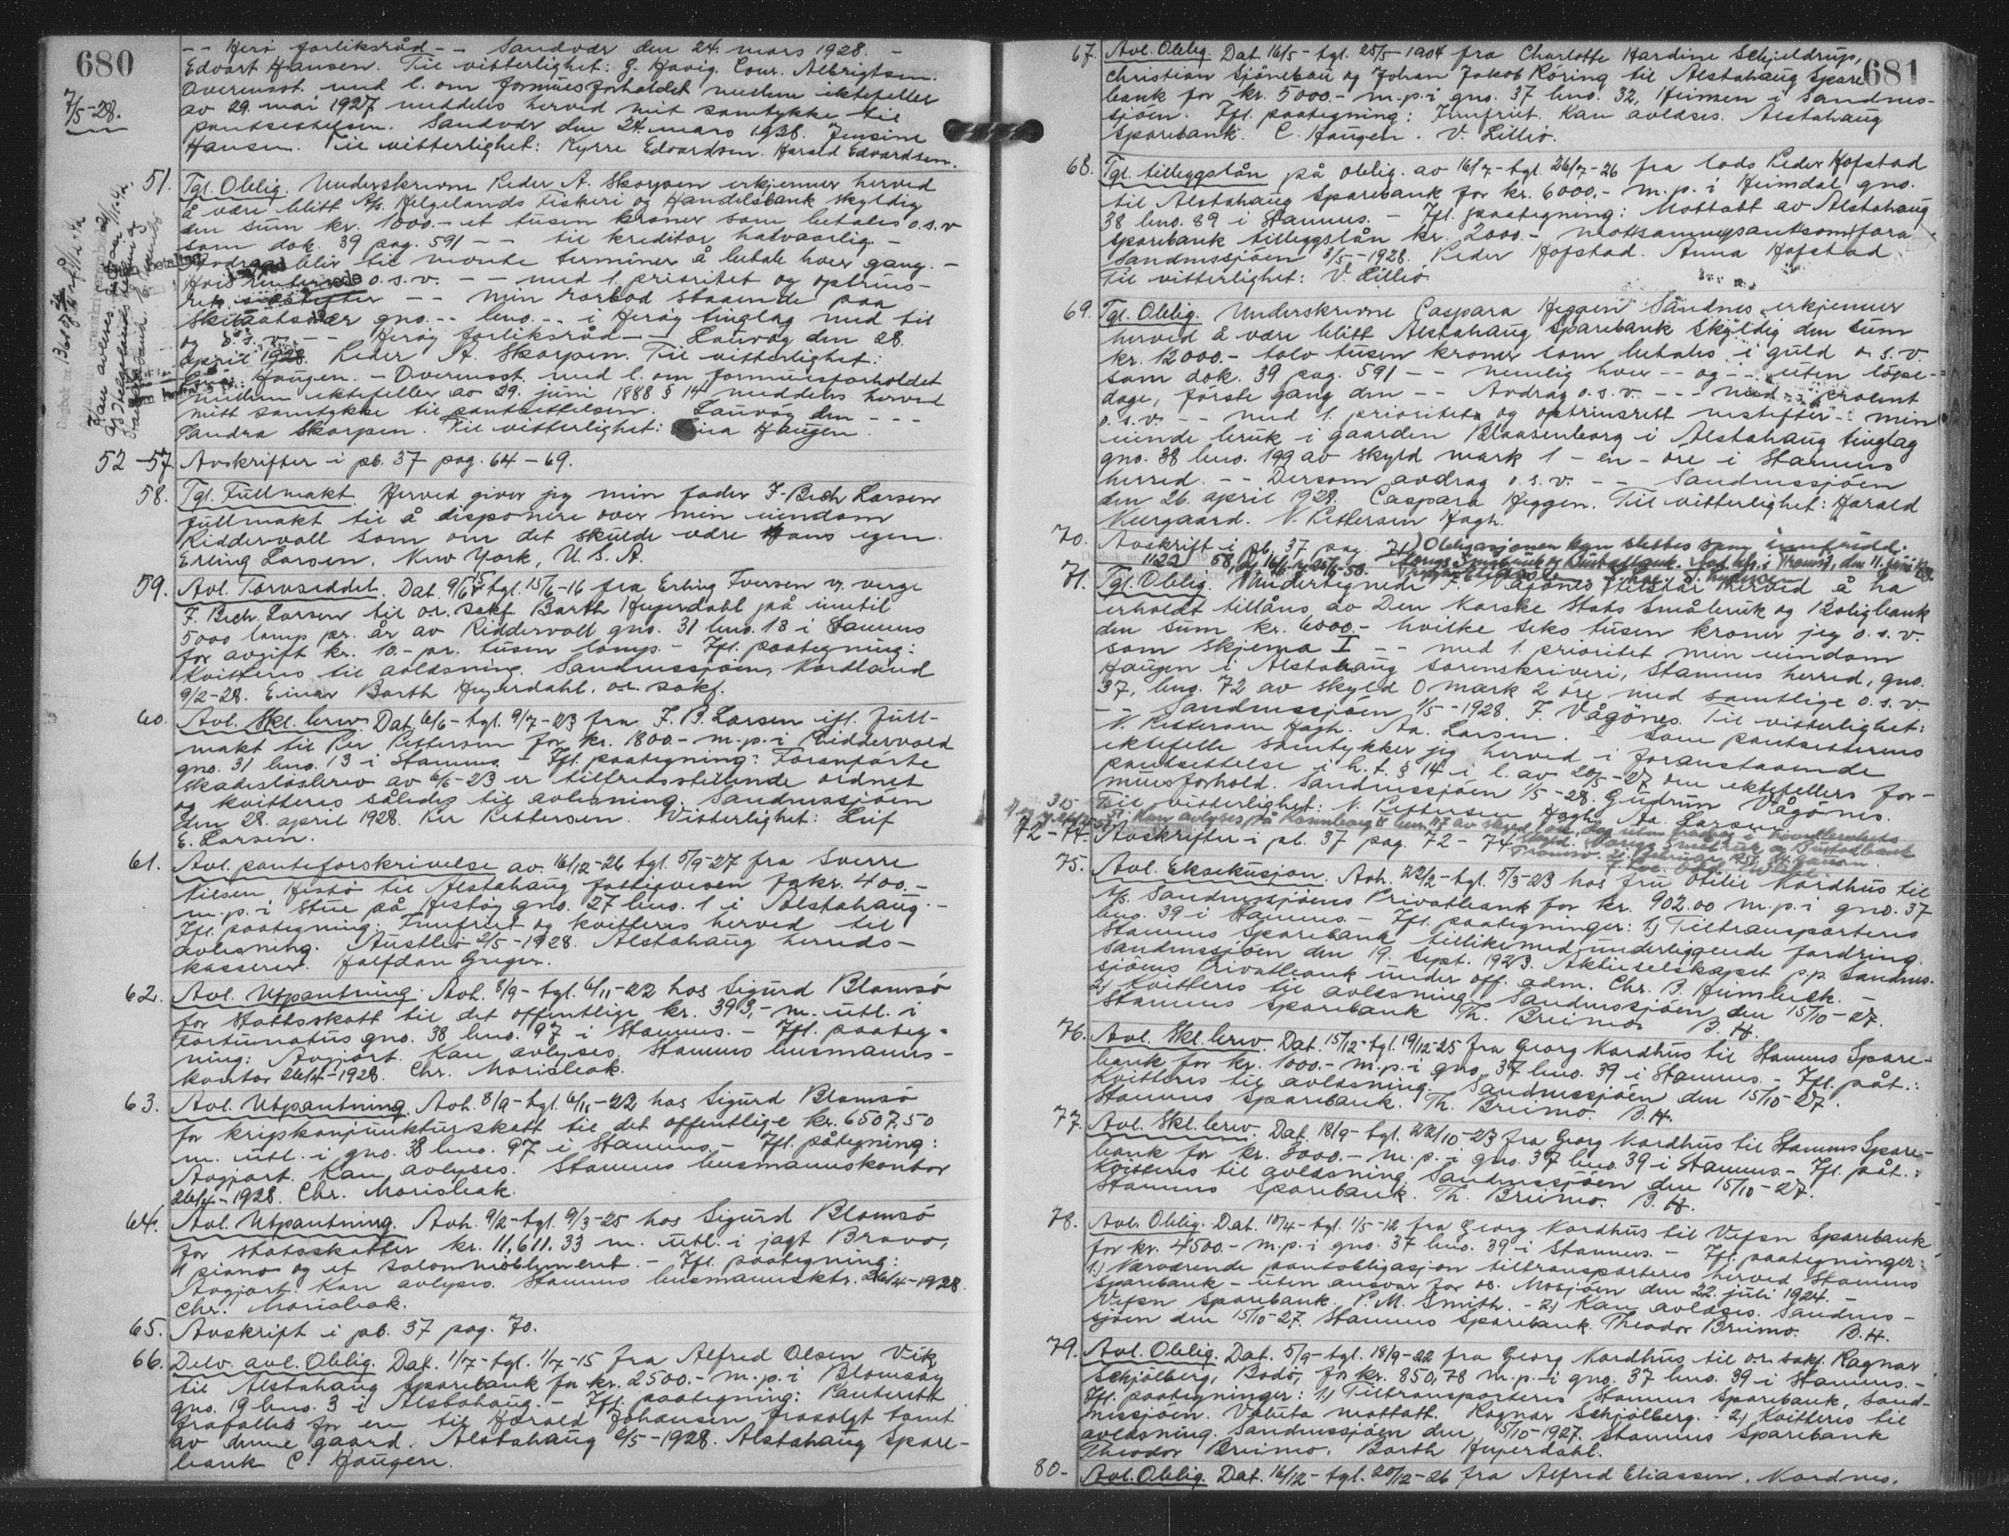 680
-- Herø forliksråd -- Sandvær den 24. mars 1928. -
Edvart Hansen. Til vitterlighet: G. Havig. Cour. Albrigtsen.
Overensst. med l. om formuesforholdet mellem ektefeller
7/5-28.
av 29. mai 1927 meddeles herved mit samtykke til
pantsettelsen. Sandvær den 24. mars 1928. Jensine
Hansen. Til vitterlighet: Kyrre Edvardsen. Harald Edvardsen.
51. Tgl. Oblig. Underskrevne Peder A. Skorpen erkjenner herved
å være blitt A/s Helgelands Fiskeri og Handelsbank skyldig
den sum kr. 1000.- et tusen kroner som betales o.s.v
som dok. 39 pag. 591 -- til kreditor halvaarlig. -
Avdrag blir til nevnte terminer å betale hver gang. -
Hvis renter o.s.v. -- med 1 prioritet og optrins-
rett -- min rorbod staaende paa
Skitaatsvær gno. -- bno. -- i Herøy tinglag med til
og o.s.v. -- Herøy forliksråd -- Lauvøy den 28.
april 1928. Peder A. Skorpen. Til vitterlighet:
Haugen. - Overensst. med l. om formuesforholdet
mellem ektefeller av 29. juni 1888 § 14 meddeles herved
mitt samtykke til pantsettelsen. Lauvøy den --
Sandra Skorpen. Til vitterlighet: Haugen.
52-57. Avskrifter i pb. 37 pag. 64-69.
58. Tgl. Fullmakt. Herved giver jeg min fader F. Bech Larsen
fullmakt til å disponere over min eiendom
Riddervoll som om det skulde være Hans egen.
Erling Larsen. New York, U.S.A.
59. Avl. Torvseddel. Dat. 9/6 tgl. 15/6-16 fra Erling Iversen v. verge
F. Bech Larsen til or. sakf. Barth Heyerdahl på inntil
5000 lomp pr. år av Riddervoll gno. 31 bno. 13 i Stamnes
for avgift kr. 10.- pr. tusen lomp. - Ifl. paategning:
Kvitteres til avlæsning. Sandnessjøen, Nordland
9/2-28. Einar Barth Heyerdahl. or. sakf.
60. Avl. Skl. brev. Dat. 6/6- tgl. 9/7-23 fra F. B. Larsen ifl. full-
makt til Per Pettersen for kr. 1800.- m.p. i Riddervold
gno. 31 bno. 13 i Stamnes - Ifl. paategning: Foranførte
skadesløsbrev av 6/6-23 er tilfredsstillende ordnet
og kvitteres således til avlesning. Sandnessjøen
den 28. april 1928. Per Pettersen. Vitterlighet: Leif
E. Larsen.
61. Avl. panteforskrivelse av 16/12-26 tgl. 5/9-27 fra Sverre
Nilsen Hestø til Alstahaug fattigvesen for kr. 400.-
m.p. i stue på Hestøy gno. 27 bno. 1 i Alstahaug. -
Ifl. paategning: Innfriet og kvitteres herved til
avlesning. Austbø 2/5-1928. Alstahaug herreds-
kasserer. Halfdan Greger.
62. Avl. Utpantning. Avh. 8/9- tgl. 6/11-22 hos Sigurd Blomsø
for stattsskatt til det offentlige kr. 393,- m. utl. i
Fortunatus gno. 38 bno. 97 i Stamnes. - Ifl. paateg-
ning: Avgjort. Kan avlyses. Stamnes lensmanns-
kontor 26/4-1928. Chr. Morisbak.
63. Avl. Utpantning. Avh. 8/9- tgl. 6/11-22 hos Sigurd Blomsø
for krigskonjunkturskatt til det offentlige kr. 6507,50
m. utl. i gno. 38 bno. 97 i Stamnes. - Ifl. påtegning:
Avgjort. Kan avlyses. Stamnes lensmannskontor
26/4-1928. Chr. Morisbak.
64. Avl. Utpantning. Avh. 9/2- tgl. 9/3-25 hos Sigurd Blomsø
for statsskatter kr. 11,611.33 m. utl. i jagt Bravo,
1 piano og et salonmøblement. - Ifl. paategning:
Avgjort. Kan avlyses. Stamnes lensmannsktr. 26/4-1928.
Chr. Morisbak.
65. Avskrift i pb. 37 pag. 70.
66. Delv. avl. Oblig. Dat. 1/7- tgl. 1/7-15 fra Alfred Olsen Vik
til Alstahaug Sparebank for kr. 2500.- m.p. i Blomsøy
gno. 19 bno. 3 i Alstahaug. - Ifl. paategning: Panterett
frafalles for en til Harald Johansen frasolgt tomt
av denne gaard. Alstahaug 2/5-1928. Alstahaug Spare-
bank C. Haugen.
681
67. Avl. Oblig. Dat. 16/5- tgl. 25/5-1904 fra Charlotte Hardine Schjeldrup,
Christian Sjönebau og Johan Jakob Röring til Alstahaug Spare-
bank for kr. 5000.- m.p. i gno. 37 bno. 32, Heimen i Sandnes-
sjøen. Ifl. paategning: Innfriet. Kan avlæses. Alstahaug
Sparebank. C. Haugen. V. Lillo.
68. Tgl. tilleggslån på oblig. av 16/7- tgl. 26/7-26 fra lods Peder Hofstad
til Alstahaug Sparebank for kr. 6000.- m.p. i Heimdal gno.
38 bno. 89 i Stamnes. - Ifl. paategning: Mottatt av Alstahaug
Sparebank tilleggslån kr. 2000.- mot samme pant som foran.
Sandnessjøen 8/5-1928. Peder Hofstad. Anna Hofstad
Til vitterlighet: V. Lillo.
69. Tgl. Oblig. Underskrevne Caspara Heggen Sandnes erkjenner
herved å være blitt Alstahaug Sparebank skyldig den sum
kr. 12000.- tolv tusen kroner som betales i guld o.s.v.
som dok. 39 pag. 591 -- nemlig hver -- og -- uten løpe-
dage, første gang den -- Avdrag o.s.v. -- med -- prosent
o.s.v. -- med 1. prioritets og optrinsrett nestefter -- min
eiende bruk i gaarden Blaasenborg i Alstahaug tinglag
gno. 38 bno. 199 av skyld mark 1 - en - øre i Stamnes
herred. -- Dersom avdrag o.s.v. -- Sandnessjøen
den 26. april 1928. Caspara Heggen. Til vitterlighet: Harald
Neergaard. N. Pettersen Hagh.
70. Avskrift i pb. 37 pag. 71. Obligasjonen kan slettes som innfridd.
71. Tgl. Oblig. Undertegnede F. Vågønes tilstår herved å ha
erholdt tillåns av Den Norske Stats Småbruk og Boligbank
den sum kr. 6000.- hvilke seks tusen kroner jeg o.s.v.
som skjema I -- med 1. prioritet min eiendom
Haugen i Alstahaug sorenskriveri, Stamnes herred, gno.
37, bno. 72 av skyld 0 mark 2 øre med samtlige o.s.v.
-- Sandnessjøen 1/5-1928. F. Vågønes. Til vitterlighet:
N. Pettersen Hagh. Aa. Larsen. - Som pantsetterens
ektefelle samtykker jeg herved i foranstaaende
pantsettelse i h. t. § 14 i l. av 20/5-27 om ektefellers for-
muesforhold. Sandnessjøen 1/5-28. Gudrun Vågønes.
Til vitterlighet: N. Pettersen Hagh. Aa. Larsen.
72-74. Avskrifter i pb. 37 pag. 72-74.
75. Avl. Eksekusjon. Avh. 22/2- tgl. 5/3-23 hos fru Otilie Nordhus til
A/s. Sandnessjøens Privatbank for kr. 902.00 m.p. i gno. 37
bno. 39 i Stamnes. - Ifl. paategninger: 1.) Tiltransporteres
Stamnes Sparebank tillikemed underliggende fordring.
Sandnessjøen den 19. sept. 1923. Aktieselskapet p.p. Sandnes-
sjøens Privatbank under off. adm. Chr. B. Heimbeck. -
2.) Kvitteres til avlæsning. Sandnessjøen den 15/10-27.
Stamnes Sparebank Th. Breimo. B. H.
76. Avl. Skl. brev. Dat. 15/12- tgl. 19/12-25 fra Georg Nordhus til Stamnes Spare-
bank for kr. 1000.- m.p. i gno. 37 bno. 39 i Stamnes. - Ifl. påt.:
Kvitteres til avlæsning. Sandnessjøen den 15/10-27.
Stamnes Sparebank. Th. Breimo. B.H.
77. Avl. Skl. brev. Dat. 18/9- tgl. 22/10-23 fra Georg Nordhus til Stamnes Spare-
bank for kr. 3000.- m.p. i gno. 37 bno. 39 i Stamnes. - Ifl. påt.:
Kvitteres til avlæsning Sandnessjøen den 15/10-27.
Stamnes Sparebank. Th. Breimo. B. H.
78. Avl. Oblig. Dat. 10/4- tgl. 1/5-12 fra Georg Nordhus til Vefsn Sparebank
for kr. 4500.- m.p. i gno. 37 bno. 39 i Stamnes. - Ifl. paategninger:
1.) Nærværende pantobligasjon tiltransporteres herved Stamnes
Sparebank - uten ansvar for os. Mosjøen den 22. juli 1924. -
Vefsn Sparebank. P. M. Smith. - 2.) Kan avlæses. Sandnes-
sjøen den 15/10-27. Stamnes Sparebank. Theodor Breimo. B.H.
79. Avl. Oblig. Dat. 5/9- tgl. 18/9-22 fra Georg Nordhus til o.r. sakf. Ragnar
Schjølberg, Bodø, for kr. 850,78 m.p. i gno. 37 bno. 39 i Stamnes. -
Ifl. paategninger: 1.) Tiltransporteres Stamnes Sparebank, Sand-
nessjøen. Valuta mottatt. Ragnar Schjølberg. - 2.) Kvitteres til
avlæsning. Sandnessjøen den 15/10-1927. Stamnes Sparebank
Theodor Breimo. Barth Heyerdahl.
80- Avl. Oblig. Dat. 16/12- tgl. 20/12-26 fra Alfred Eliassen, Nordnes.